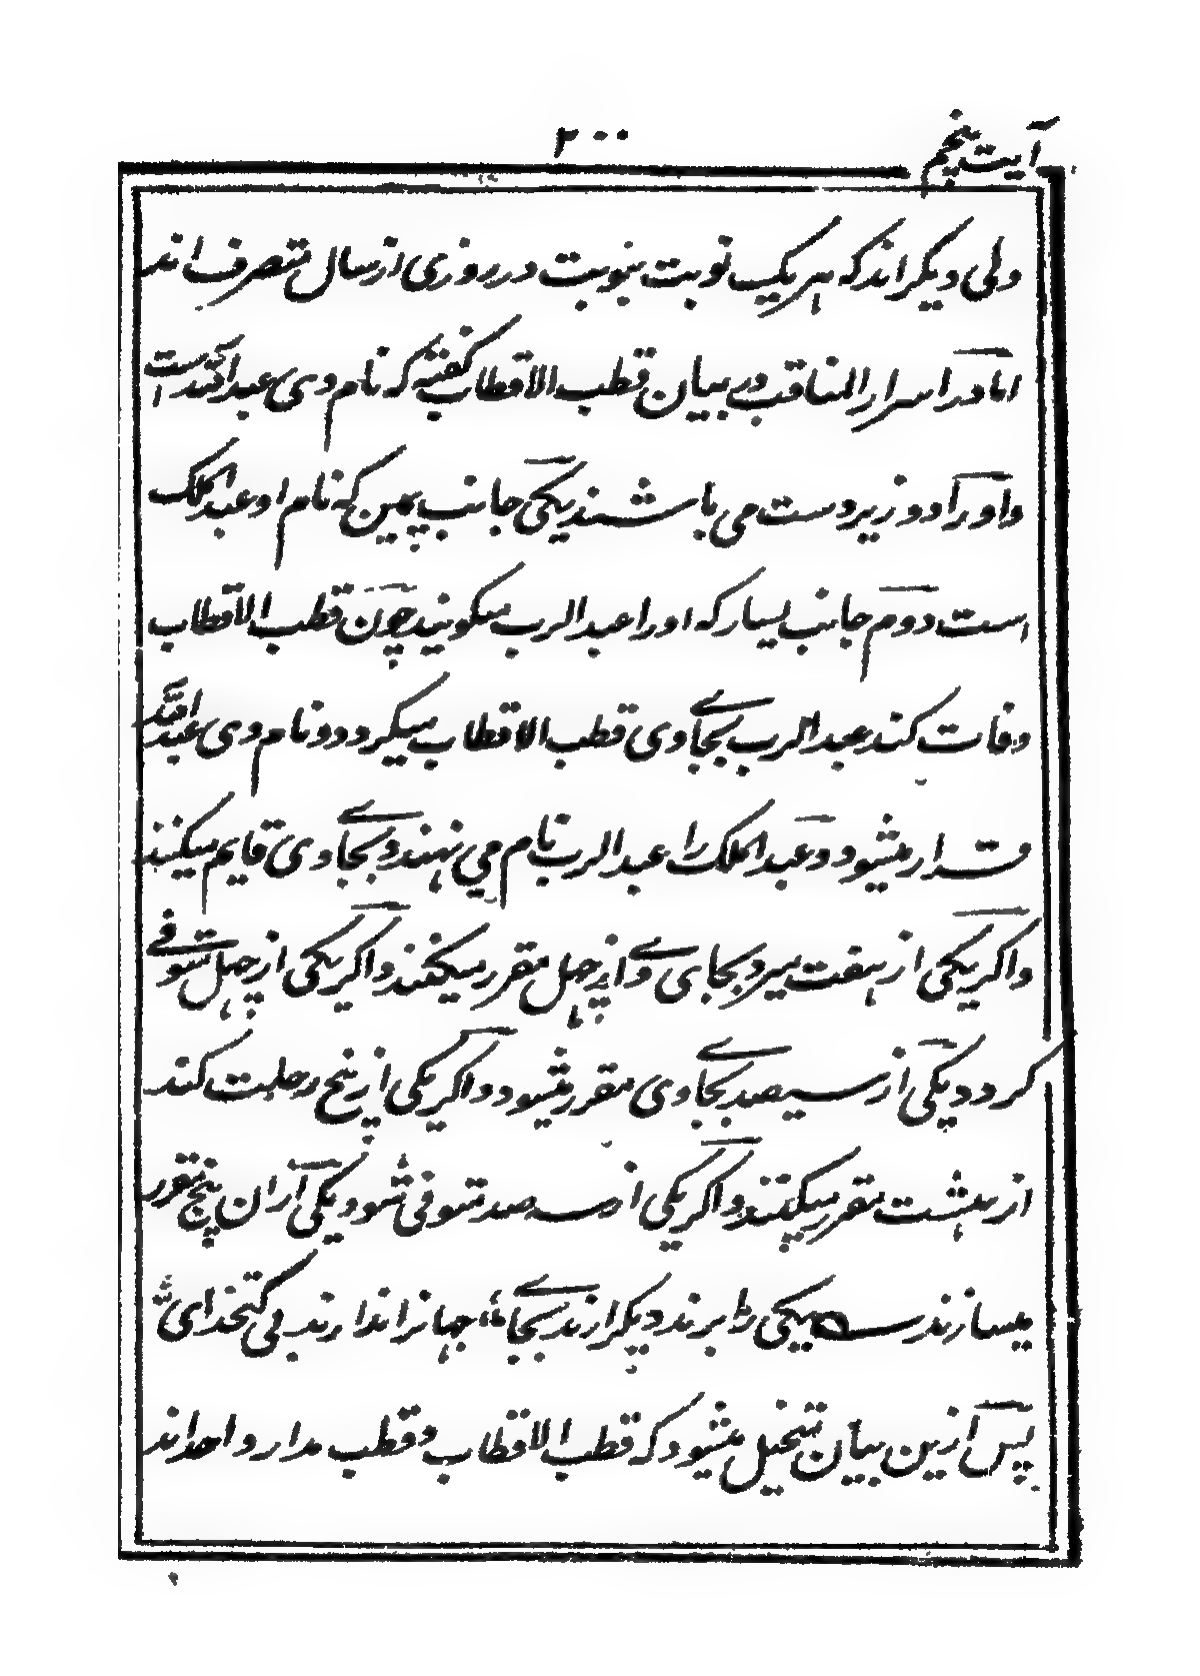 ۲۰۰
آیت پنجم
ولی دیگر اند که هر یک نوبت بنوبت در روزی از سال متصرف اند
اما در اسرار المناقب در بیان قطب الاقطاب گفته که نام وی عبد الله است
و او را دو وزیر دست می باشند یکی جانب یمین که نام او عبد الملک
است دوم جانب یسار که او را عبد الرب میگویند چون قطب الاقطاب
وفات کند عبد الرب بجاوی قطب الاقطاب میگردد و نام وی عبد الله
قرار میشود و عبد الملک را عبد الرب نام می نهند و بجاوی قایم میکنند
و اگر یکی از هفت میرد بجای وے از چهل مقرر میکنند و اگر یکی از چهل متوفے
گردد یکی از سیصد بجاوی مقرر میشود و اگر یکی از پنج رحلت کند
از هشت مقرر میکنند و اگر یکی از سه صد متوفی شود یکی از ان پنج مقرر
میسازند سه یکی را برند دیگر ارند بجاے جهانرا ندارند بی کتخدای
پس ازین بیان متخیل میشود که قطب الاقطاب و قطب مدار واحد اند